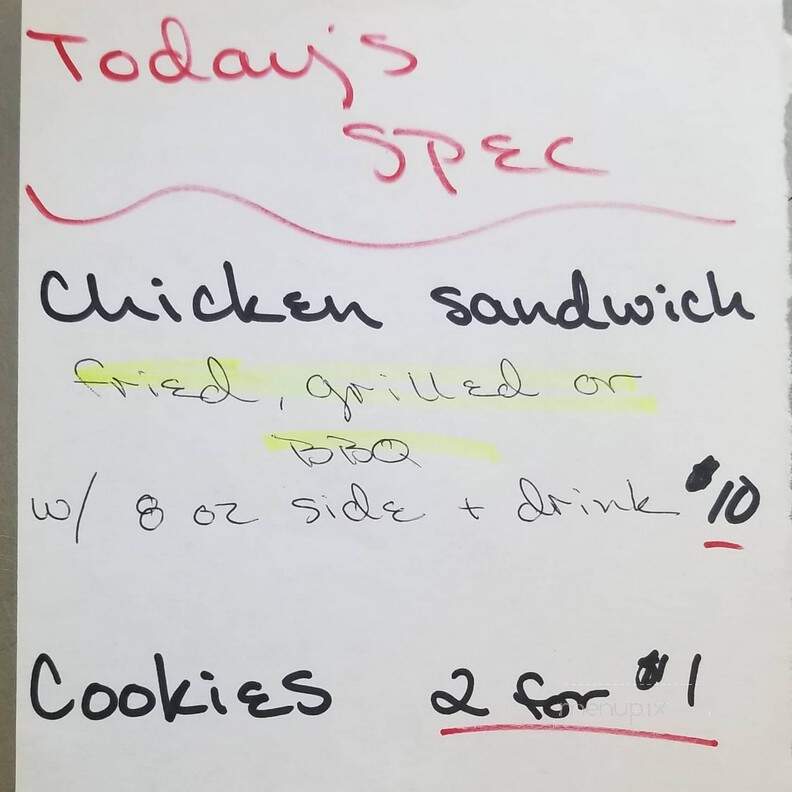 Today's
SPEC
Chicken sandwich
fried, grilled or
BBQ
w/ 8 oz side + drink $10
Cookies 2 for $1
menupix